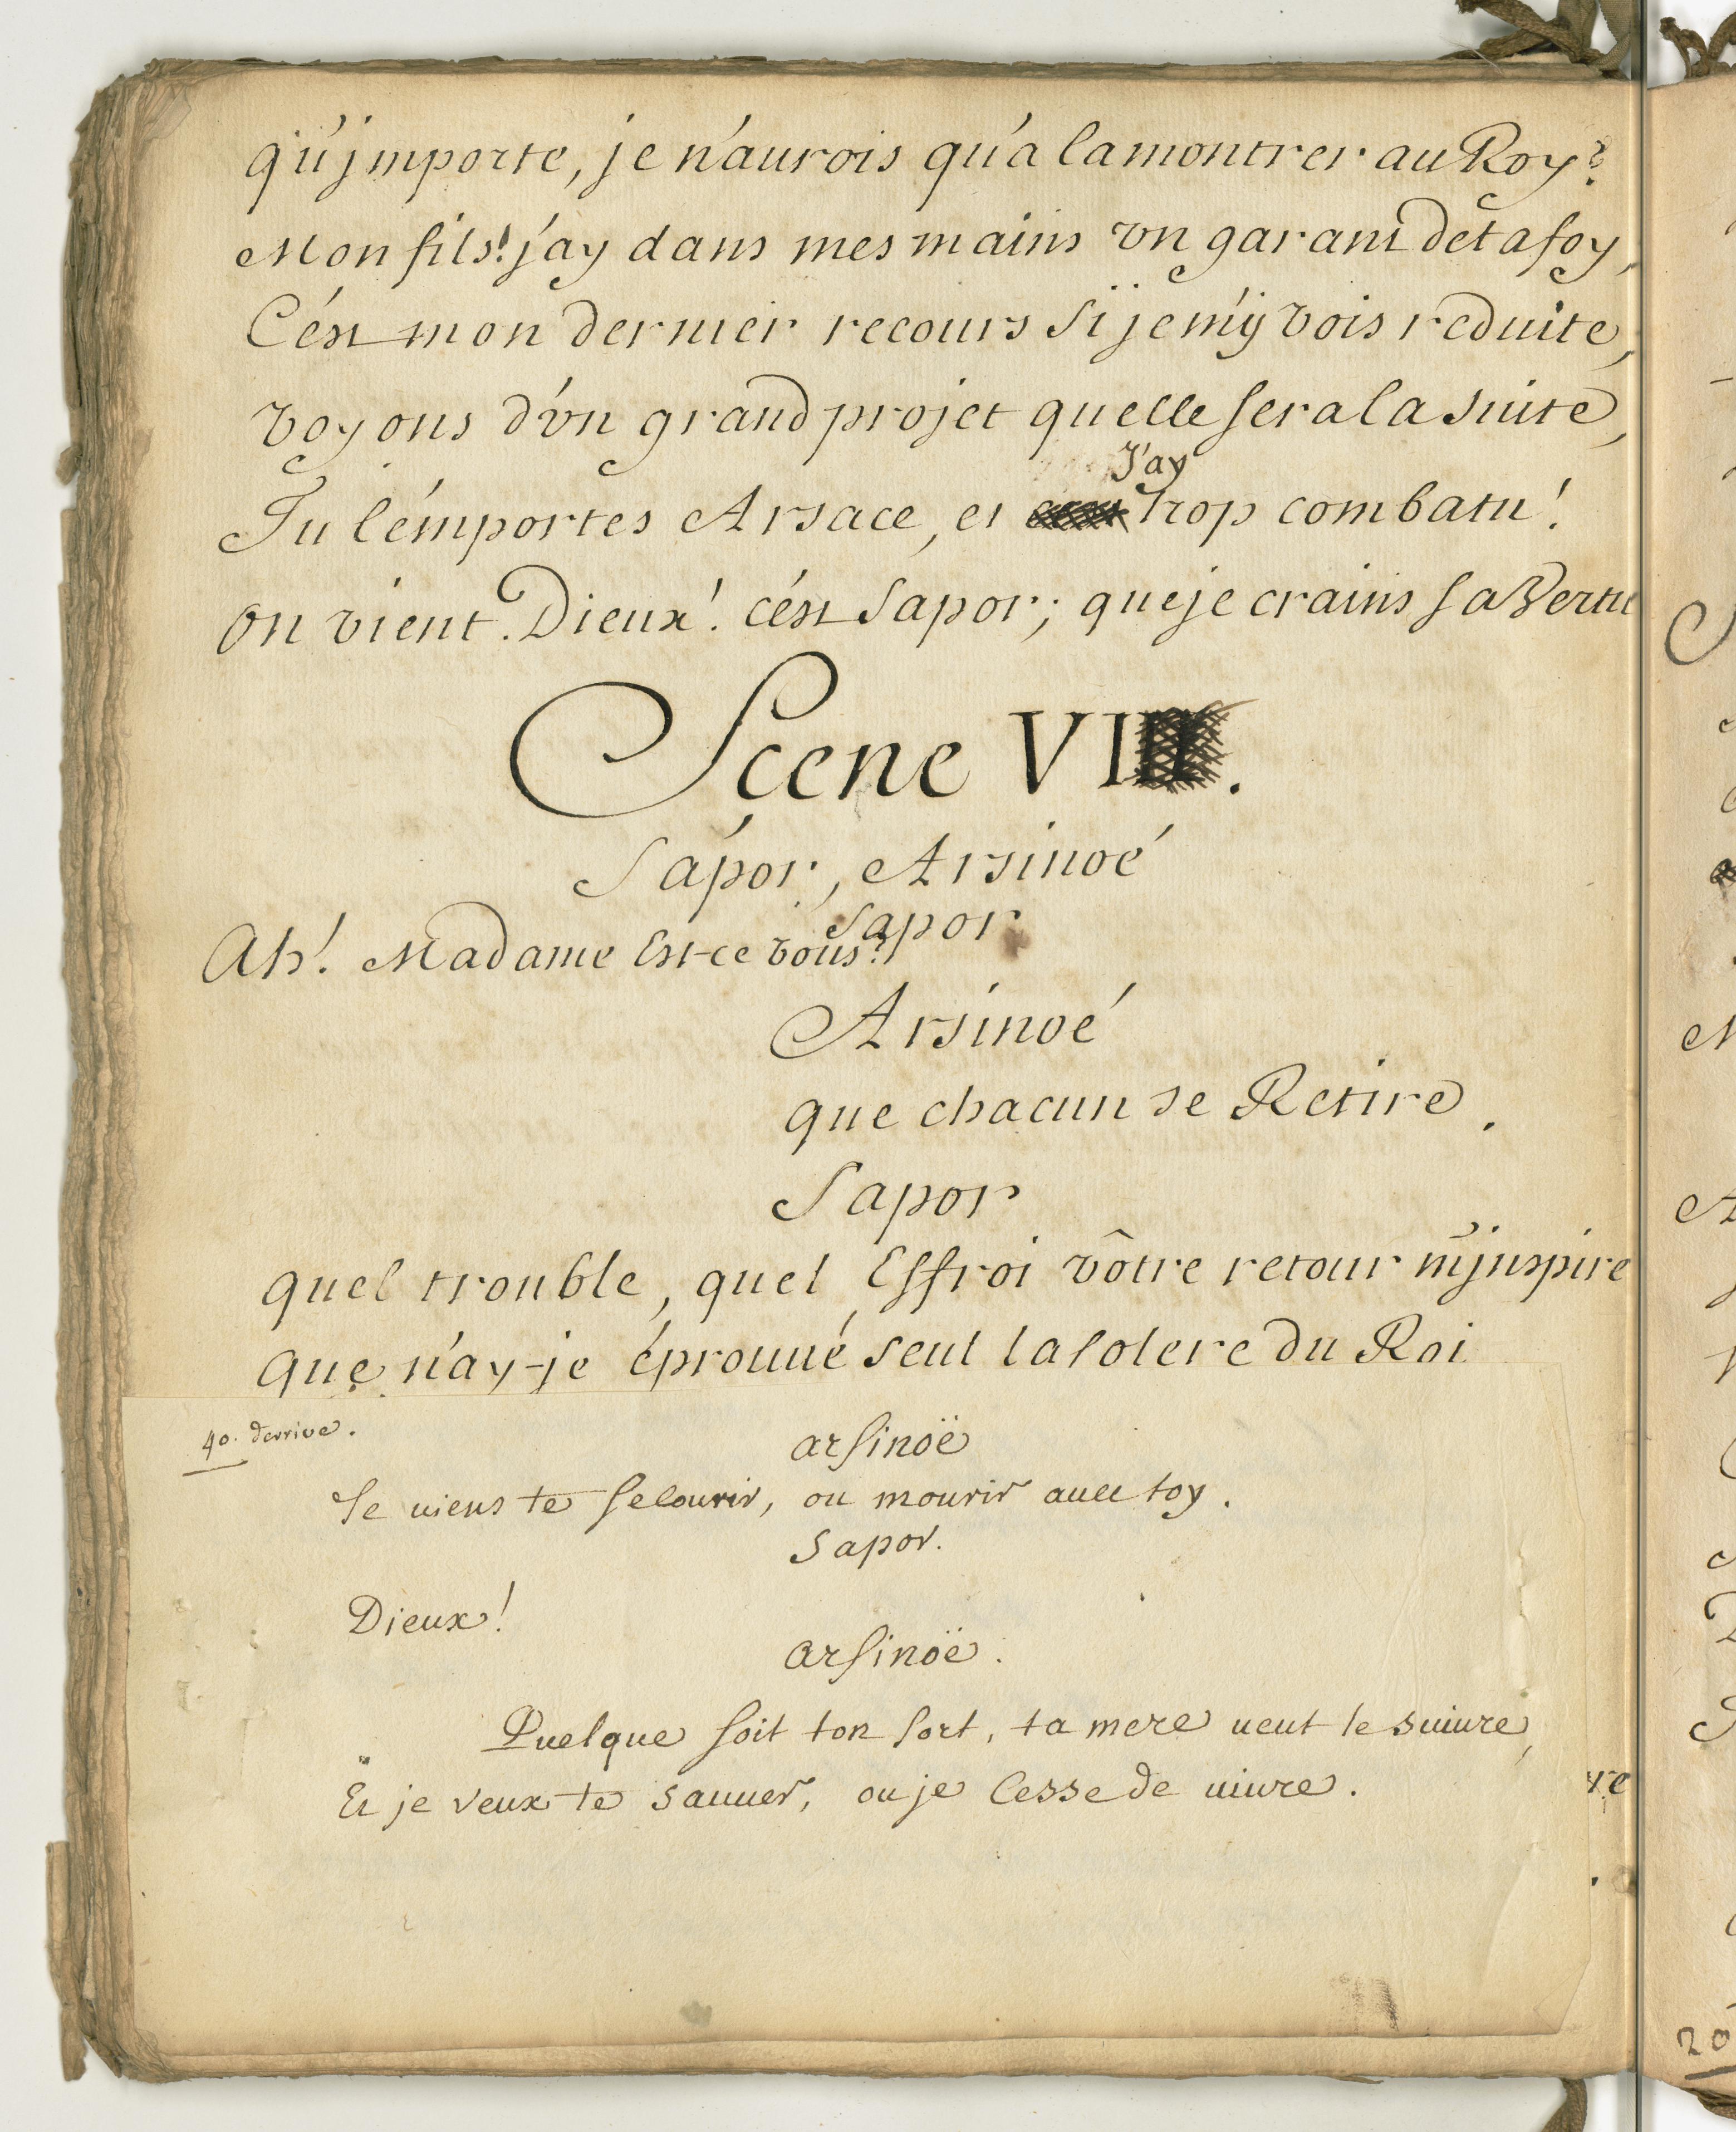 qu'jmporte, je n'aurois qu'a la montrer au Roy?
Mon fils! j'ay dans mes mains vn garant de ta foy,
C'est mon dernier recours si je m'ÿ vois reduite,
voyons d'vn grand projet quelle sera la suite,
J'ay
Tu l'emportes Arsace, et trop combatu!
on vient. Dieux! c'est Sapor; que je crains sa Vertu
Scene VI.
Sapor, Arsinoé
Sapor
Ah! Madame Est-ce vous?
Arsinoé
que chacun se Retire.
Sapor
quel trouble, quel Effroi vôtre retour m'jnspire
Que n'ay-je éprouué seul la colere du Roi
40. derriere.
arsinoë
Je uiens te secourir, ou mourir auec toy.
Sapor.
Dieux!
arsinoë.
Quelque soit ton sort, ta mere ueut le suiure,
Et je veux te sauuer, ou je cesse de uiure.
re
20